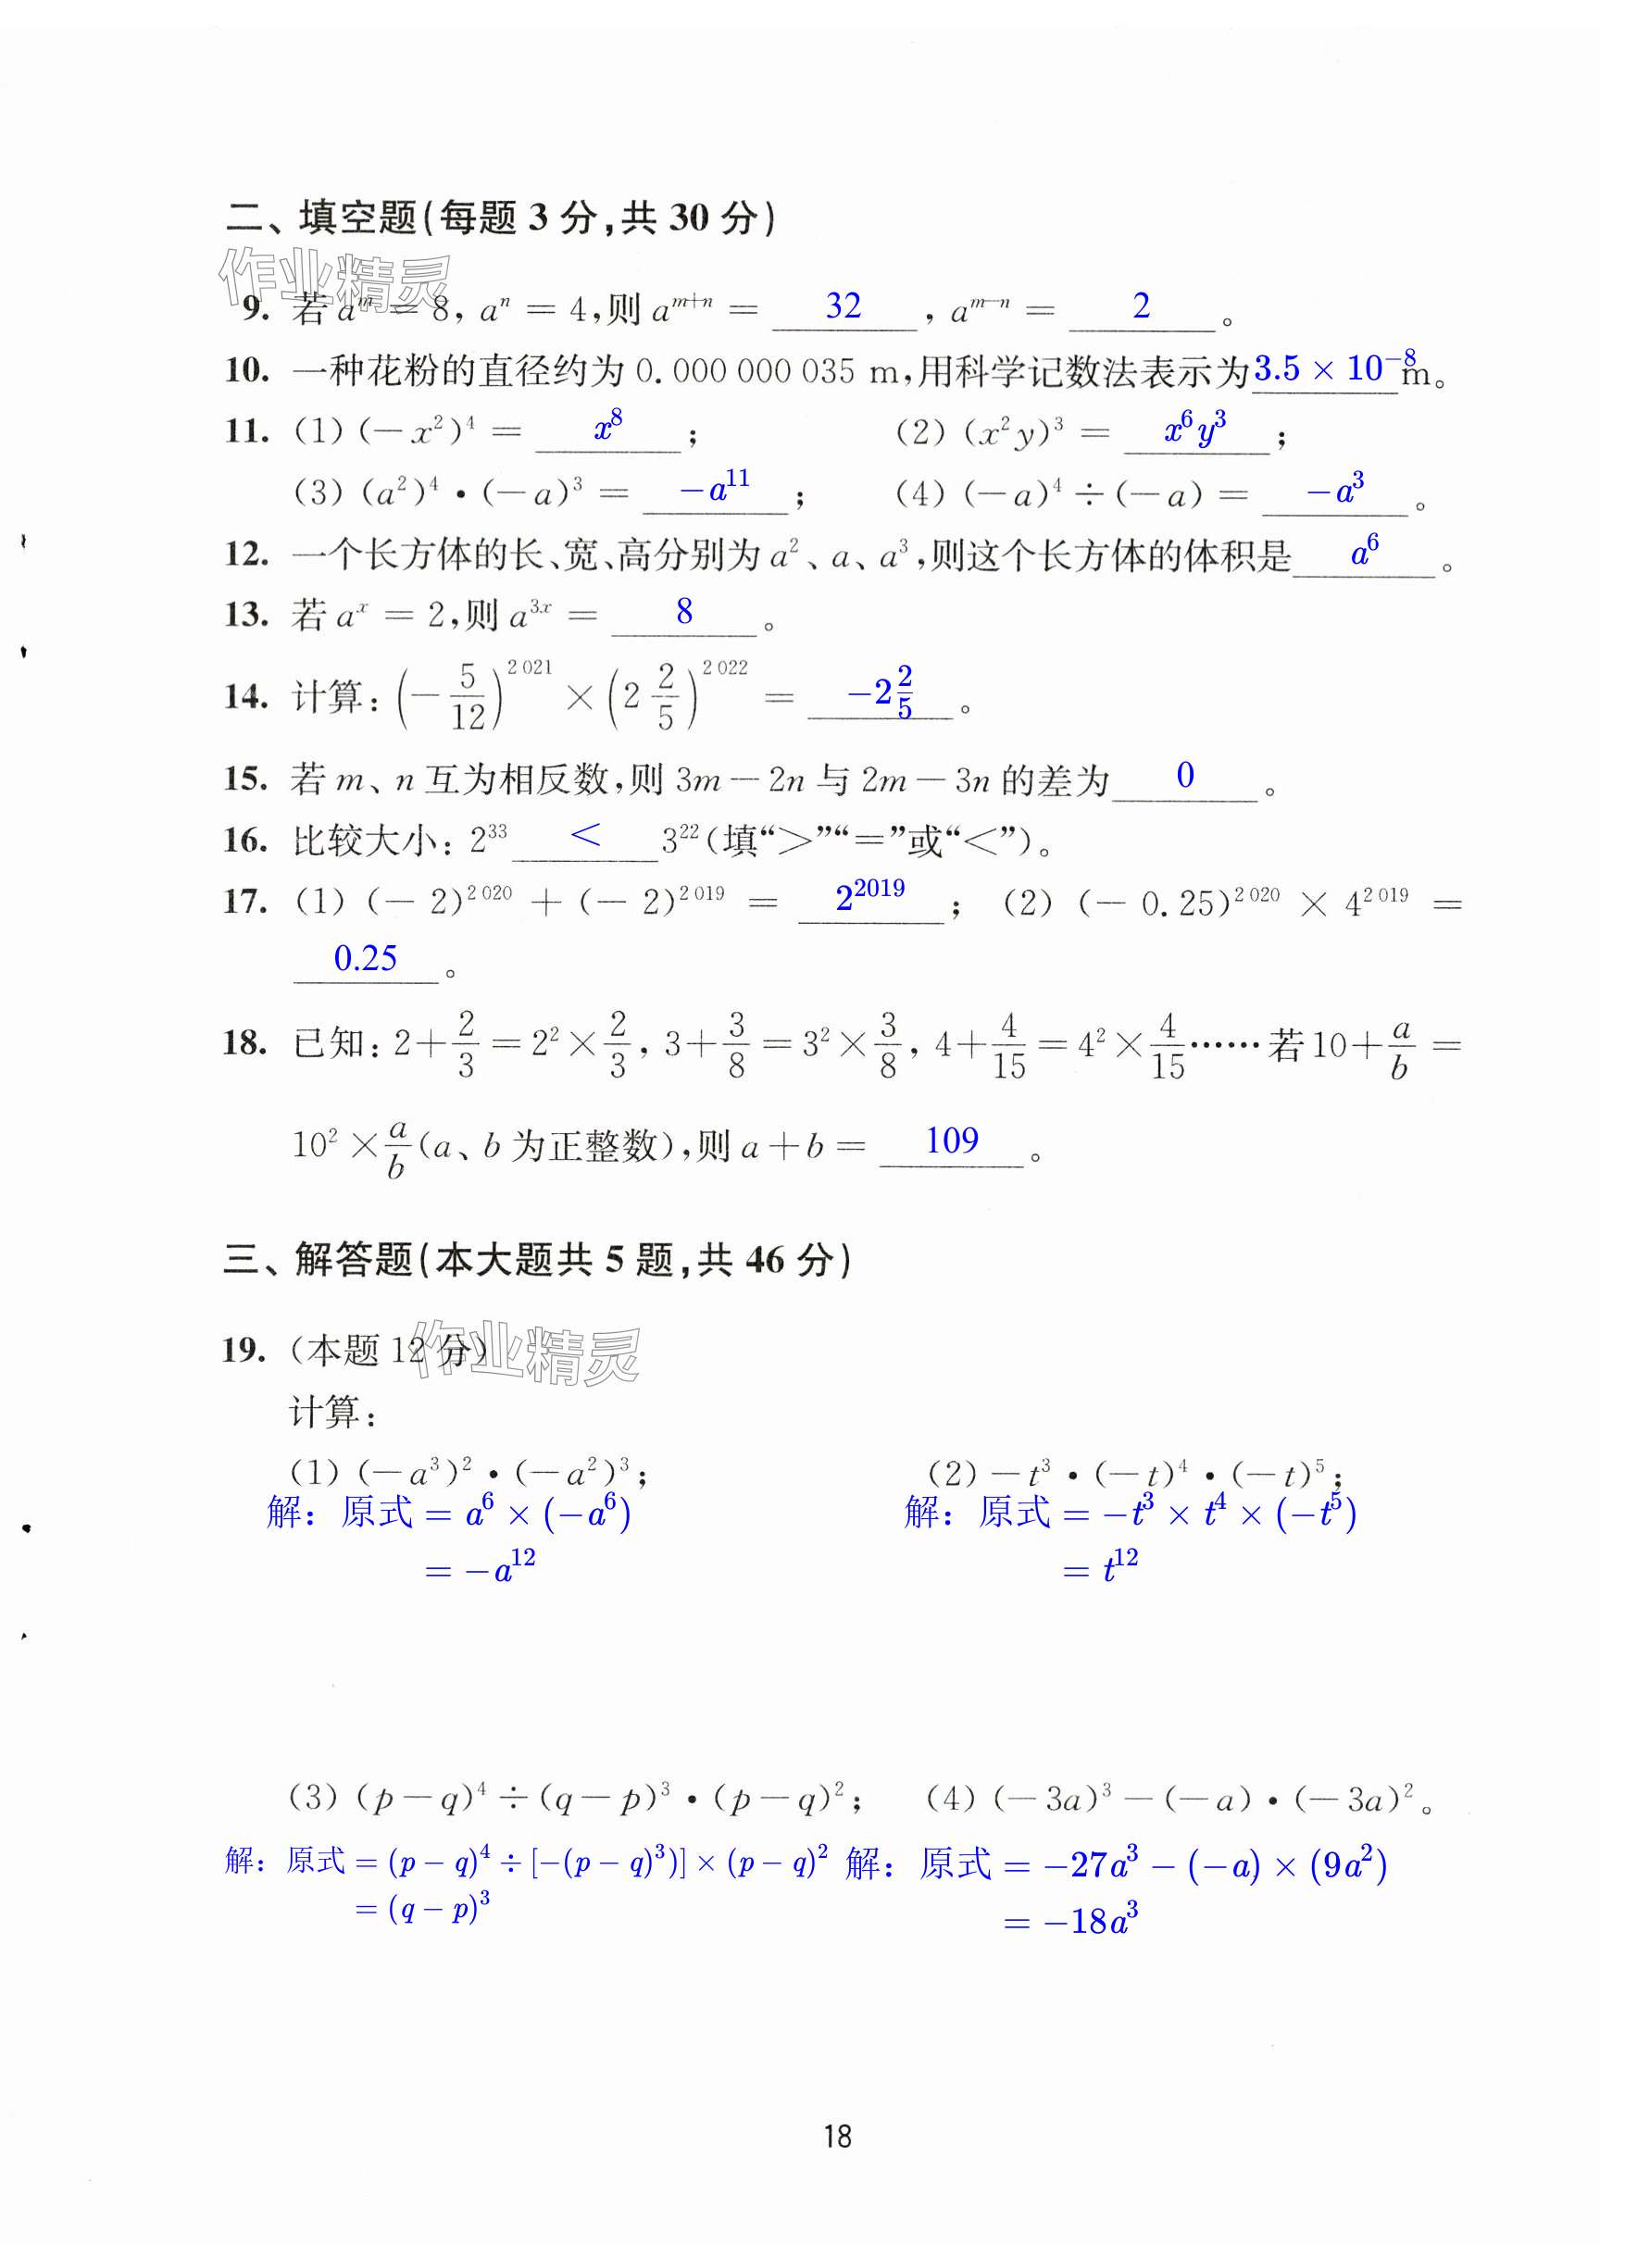 二、填空题(每题 3 分,共 30 分)
作业精灵
9. 若 aᵐ = 8, aⁿ = 4,则 aᵐ⁺ⁿ = 32 , aᵐ⁻ⁿ = 2 。
10. 一种花粉的直径约为 0.000 000 035 m,用科学记数法表示为 3.5 × 10⁻⁸ m。
11. (1) (−x²)⁴ = x⁸ ; (2) (x²y)³ = x⁶y³ ;
(3) (a²)⁴ • (−a)³ = −a¹¹ ; (4) (−a)⁴ ÷ (−a) = −a³ 。
12. 一个长方体的长、宽、高分别为 a²、a、a³,则这个长方体的体积是 a⁶ 。
13. 若 aˣ = 2,则 a³ˣ = 8 。
14. 计算: (−5/12)²⁰²¹ × (2 2/5)²⁰²² = −2 2/5 。
15. 若 m、n 互为相反数,则 3m − 2n 与 2m − 3n 的差为 0 。
16. 比较大小: 2³³ < 3²² (填“>”“=”或“<”)。
17. (1) (− 2)²⁰²⁰ + (− 2)²⁰¹⁹ = 2²⁰¹⁹ ; (2) (− 0.25)²⁰²⁰ × 4²⁰¹⁹ =
0.25 。
18. 已知: 2+2/3 = 2²×2/3, 3+3/8 = 3²×3/8, 4+4/15 = 4²×4/15……若 10+a/b =
10²×a/b(a、b 为正整数),则 a+b = 109 。
三、解答题(本大题共 5 题,共 46 分)
19. (本题 12 分)
作业精灵
计算:
(1) (−a³)² • (−a²)³; (2) −t³ • (−t)⁴ • (−t)⁵;
解: 原式 = a⁶ × (−a⁶) 解: 原式 = −t³ × t⁴ × (−t⁵)
= −a¹² = t¹²
(3) (p−q)⁴ ÷ (q−p)³ • (p−q)²; (4) (−3a)³ − (−a) • (−3a)²。
解: 原式 = (p − q)⁴ ÷ [−(p − q)³)] × (p − q)² 解: 原式 = −27a³ − (−a) × (9a²)
= (q − p)³ = −18a³
18